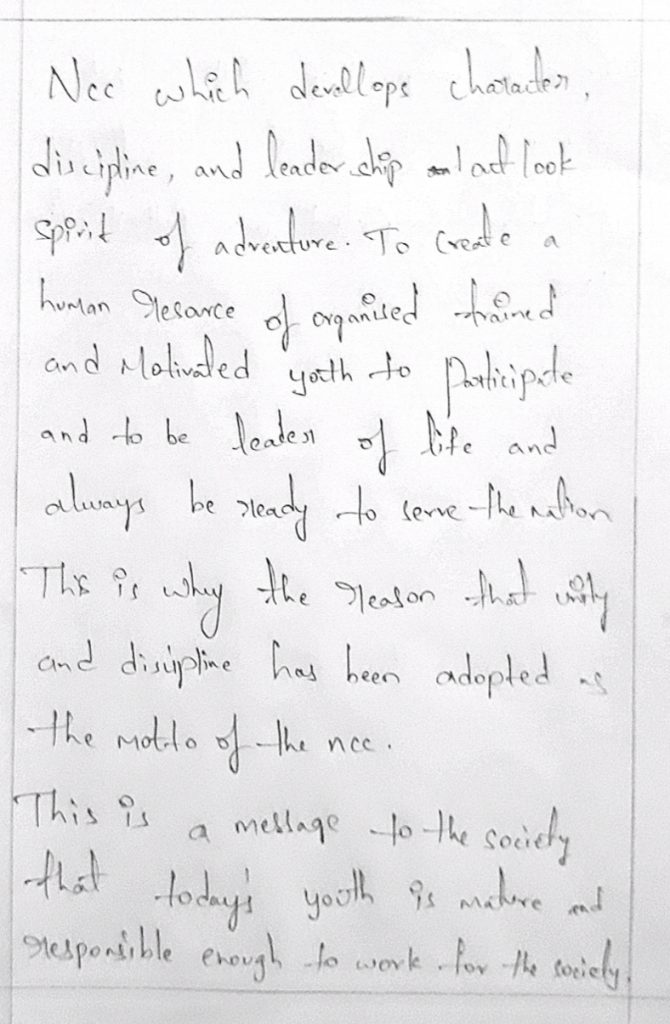 Ncc which devellops character,
discipline, and leader ship lact look
spirit of adventure. To Create a
human resarce of organised trained
and Motivated yoth to Participate
and to be leader of life and
always be ready to serve the nation
This is why the reason that unity
and discipline has been adopted as
the motto of the ncc.
This is a message to the society
that today's youth is mature and
responsible enough to work for the society.